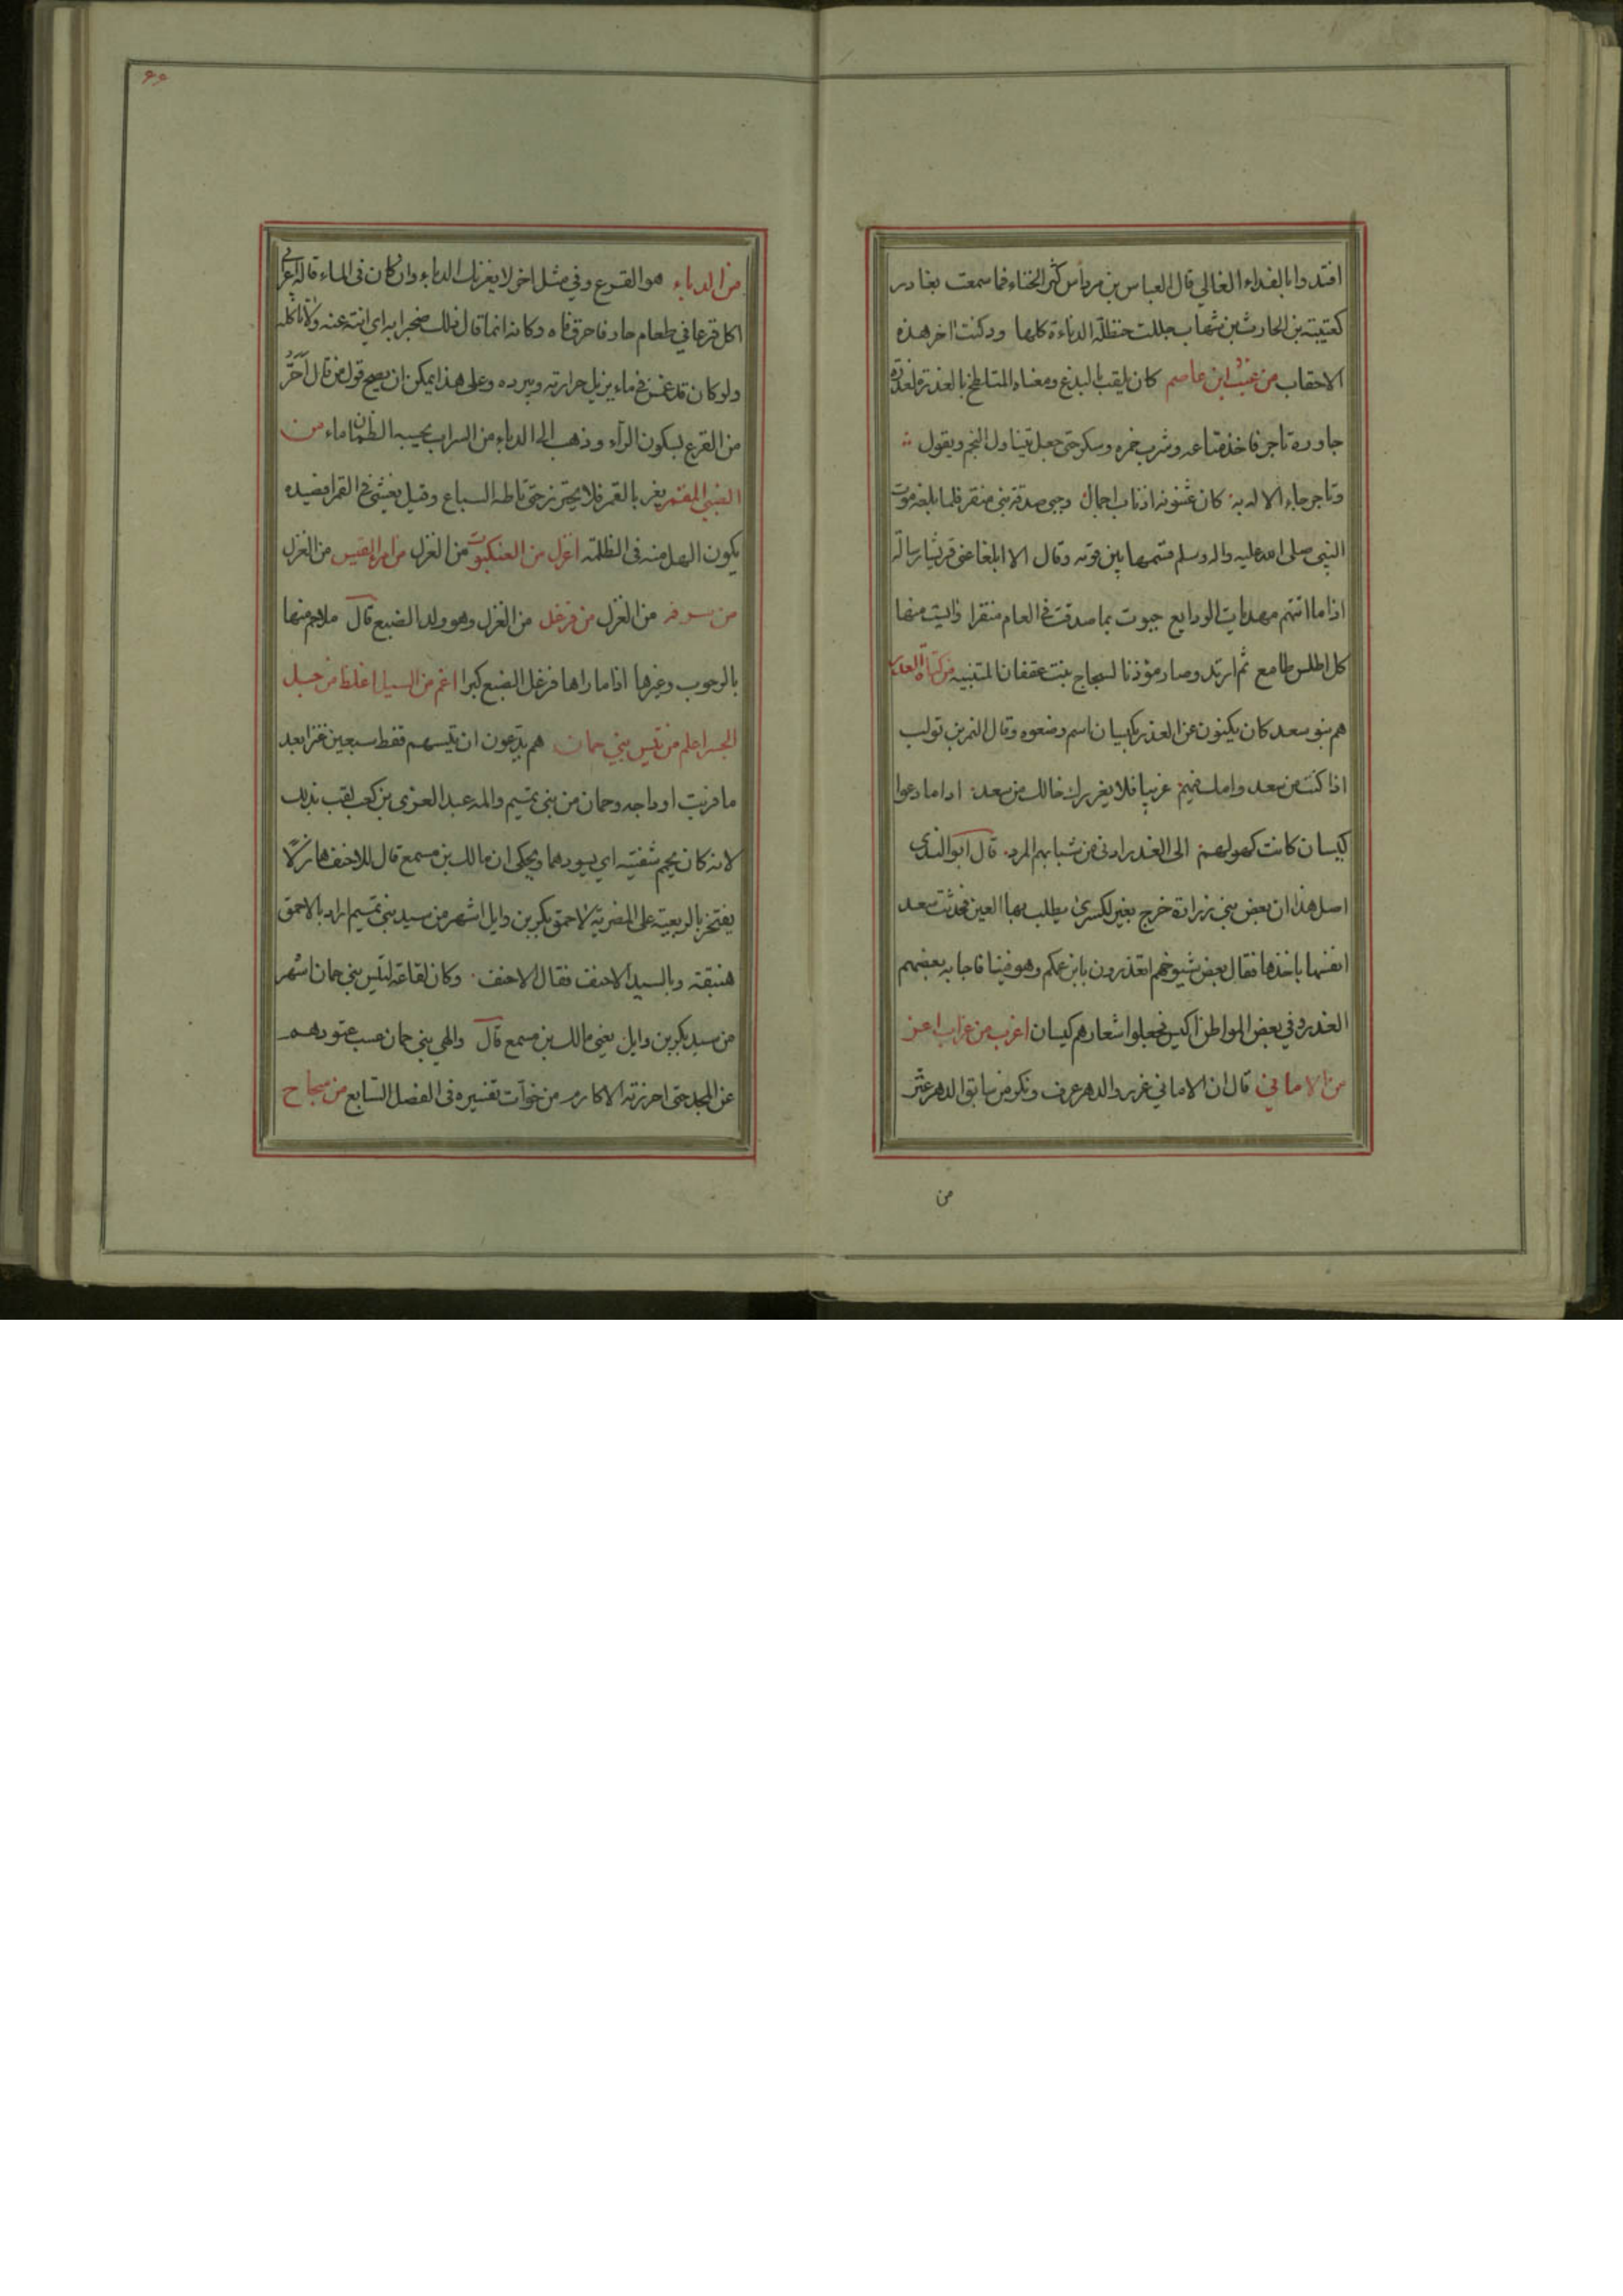 افتدوا بالفداء الغالي قال العباس بن مرداس كثر الخناء فما سمعت بغادر
كعتيبة بن الحارث بن شهاب جللت حنظلة الدناءة كلها ودكنت اخر هذه
الاحقاب من قيس ابن عاصم كان يلقب بالبذغ ومعناه المتلطخ بالعذرة لغدره
جاوره تاجر فاخذ متاعه وشرب خمره وسكر حتى جعل يتناول النجم ويقول
وتاجر جاء الاله به كان عثنونه اذناب اجمال وجبى صدقة بني منقر فلما بلغه موت
النبي صلى الله عليه واله وسلم قسمها بين قومه وقال الا ابلغا عني قريشا رسالة
اذا ما اتتهم مهديات الودايع حبوت بما صدقت في العام منقرا وايست منها
كل اطلس طامع ثم ارتد وصار مؤذنا لسجاح بنت عقفان المتنبية من كناة الغدر
هم بنو سعد كان يكنون عن الغدر بكيسان اسم وضعوه وقال النمر بن تولب
اذا كنت من سعد وامك منهم غريبا فلا يغررك خالك من سعد اذا ما دعوا
كيسان كانت كهولهم الى الغدر ادنى من شبابهم المرد قال ابو الندى
اصل هذا ان بعض بني زرارة خرج بعير لكسرى يطلب بها العين فحدثت سعد
انفسها باخذها فقال بعض شيوخهم اتغدرون بابن عمكم وهو فينا فاجابه بعضهم
الغدر في بعض المواطن اكيس فجعلوا شعارهم كيسان اغرب من غراب اغر
من الاماني قال ان الاماني غرر والدهر عرف ونكر من سابق الدهر عثر
من
٦٦
من الدباء هو القرع وفي مثل اخر لا يغرنك الدباء وان كان في الماء قاله اعرابي
اكل قرعا في طعام حار فاحرق فاه وكانه انما قال ذلك ضجرا به اي انته عنه ولا تاكله
ولو كان قد غمس في ماء يزيل حرارته ويبرده وعلى هذا يمكن ان يصح قول من قال احر
من القرع بسكون الراء وذهب الى الدباء من السراب يحسبه الظمان ماء من
الظبي المقمر يغر بالقمر فلا يحترز حتى تاكله السباع وقيل يغشى في القمر فصيده
يكون اسهل منه في الظلمة اغزل من العنكبوت من الغزل من امرء القيس من الغزل
من سرفه من الغزل من فرعل من الغزل وهو ولد الضبع قال ملاحم منها
بالرجوب وغيرها اذا ما راها فرعل الضبع كبرا اغم من السيل اغلظ من حبل
الجسر اغلم من تيس بني حمان هم يدعون ان تيسهم قفط سبعين عنزا بعد
ما فريت اوداجه وحمان من بني تميم واسمه عبد العزى بن كعب لقب بذلك
لانه كان يحمم شفتيه اي يسودهما ويحكى ان مالك بن مسمع قال للاحنف هازلا
يفتخر بالربعية على المضرية لاحمق بكر بن وايل اشهر من سيد بني تميم اراد بالاحمق
هبنقة وبالسيد الاحنف فقال الاحنف وكان لقاعة لتيس بني حمان اشهر
من سيد بكر بن وايل يعني مالك بن مسمع قال والهي بني حمان عسب عتودهم
عن المجد حتى احرزته الاكارم من خوات تفسيره في الفصل السابع من سجاح